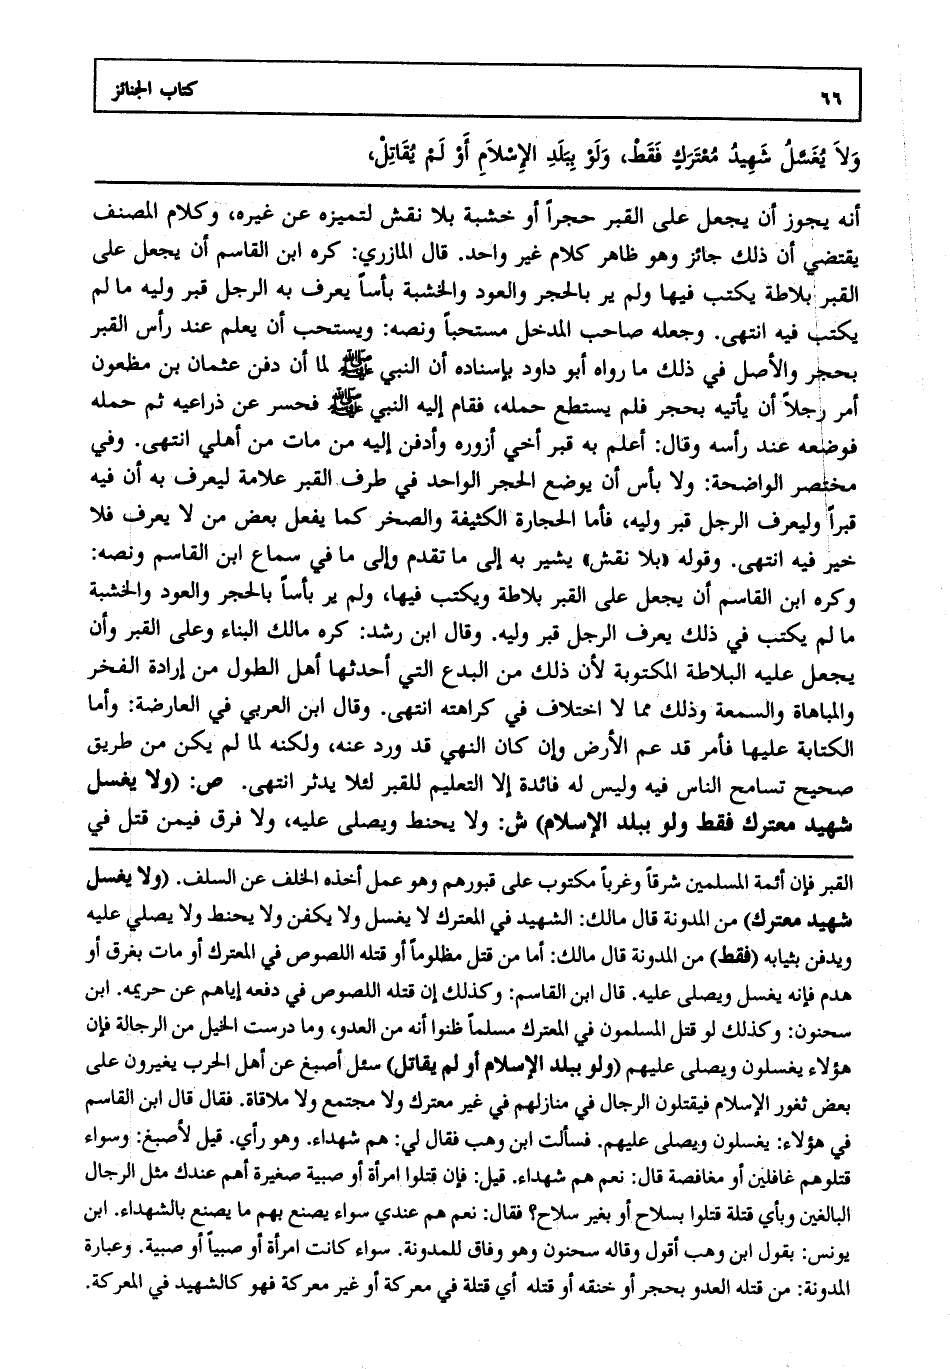 ٦٦ كتاب الجنائز
وَلاَ يُغَسَّلُ شَهِيدُ مُعْتَرَكٍ فَقَطْ، وَلَوْ بِبَلَدِ الإِسْلاَمِ أَوْ لَمْ يُقَاتِلْ،
أنه يجوز أن يجعل على القبر حجراً أو خشبة بلا نقش لتميزه عن غيره، وكلام المصنف
يقتضي أن ذلك جائز وهو ظاهر كلام غير واحد. قال المازري: كره ابن القاسم أن يجعل على
القبر بلاطة يكتب فيها ولم ير بالحجر والعود والخشبة بأساً يعرف به الرجل قبر وليه ما لم
يكتب فيه انتهى. وجعله صاحب المدخل مستحباً ونصه: ويستحب أن يعلم عند رأس القبر
بحجر والأصل في ذلك ما رواه أبو داود بإسناده أن النبي ﷺ لما أن دفن عثمان بن مظعون
أمر رجلاً أن يأتيه بحجر فلم يستطع حمله، فقام إليه النبي ﷺ فحسر عن ذراعيه ثم حمله
فوضعه عند رأسه وقال: أعلم به قبر أخي أزوره وأدفن إليه من مات من أهلي انتهى. وفي
مختصر الواضحة: ولا بأس أن يوضع الحجر الواحد في طرف القبر علامة ليعرف به أن فيه
قبراً وليعرف الرجل قبر وليه، فأما الحجارة الكثيفة والصخر كما يفعل بعض من لا يعرف فلا
خير فيه انتهى. وقوله «بلا نقش» يشير به إلى ما تقدم وإلى ما في سماع ابن القاسم ونصه:
وكره ابن القاسم أن يجعل على القبر بلاطة ويكتب فيها، ولم ير بأساً بالحجر والعود والخشبة
ما لم يكتب في ذلك يعرف الرجل قبر وليه. وقال ابن رشد: كره مالك البناء وعلى القبر وأن
يجعل عليه البلاطة المكتوبة لأن ذلك من البدع التي أحدثها أهل الطول من إرادة الفخر
والمباهاة والسمعة وذلك مما لا اختلاف في كراهته انتهى. وقال ابن العربي في العارضة: وأما
الكتابة عليها فأمر قد عم الأرض وإن كان النهي قد ورد عنه، ولكنه لما لم يكن من طريق
صحيح تسامح الناس فيه وليس له فائدة إلا التعليم للقبر لئلا يدثر انتهى. ص: (ولا يغسل
شهيد معترك فقط ولو ببلد الإسلام) ش: ولا يحنط ويصلى عليه، ولا فرق فيمن قتل في
القبر فإن أئمة المسلمين شرقاً وغرباً مكتوب على قبورهم وهو عمل أخذه الخلف عن السلف. (ولا يغسل
شهيد معترك) من المدونة قال مالك: الشهيد في المعترك لا يغسل ولا يكفن ولا يحنط ولا يصلي عليه
ويدفن بثيابه (فقط) من المدونة قال مالك: أما من قتل مظلوماً أو قتله اللصوص في المعترك أو مات بغرق أو
هدم فإنه يغسل ويصلى عليه. قال ابن القاسم: وكذلك إن قتله اللصوص في دفعه إياهم عن حريمه. ابن
سحنون: وكذلك لو قتل المسلمون في المعترك مسلماً ظنوا أنه من العدو، وما درست الخيل من الرجالة فإن
هؤلاء يغسلون ويصلى عليهم (ولو ببلد الإسلام أو لم يقاتل) سئل أصبغ عن أهل الحرب يغيرون على
بعض ثغور الإسلام فيقتلون الرجال في منازلهم في غير معترك ولا مجتمع ولا ملاقاة. فقال قال ابن القاسم
في هؤلاء: يغسلون ويصلى عليهم. فسألت ابن وهب فقال لي: هم شهداء. وهو رأي. قيل لأصبغ: وسواء
قتلوهم غافلين أو مغافصة قال: نعم هم شهداء. قيل: فإن قتلوا امرأة أو صبية صغيرة أهم عندك مثل الرجال
البالغين وبأي قتلة قتلوا بسلاح أو بغير سلاح؟ فقال: نعم هم عندي سواء يصنع بهم ما يصنع بالشهداء. ابن
يونس: بقول ابن وهب أقول وقاله سحنون وهو وفاق للمدونة. سواء كانت امرأة أو صبياً أو صبية. وعبارة
المدونة: من قتله العدو بحجر أو خنقه أو قتله أي قتلة في معركة أو غير معركة فهو كالشهيد في المعركة.